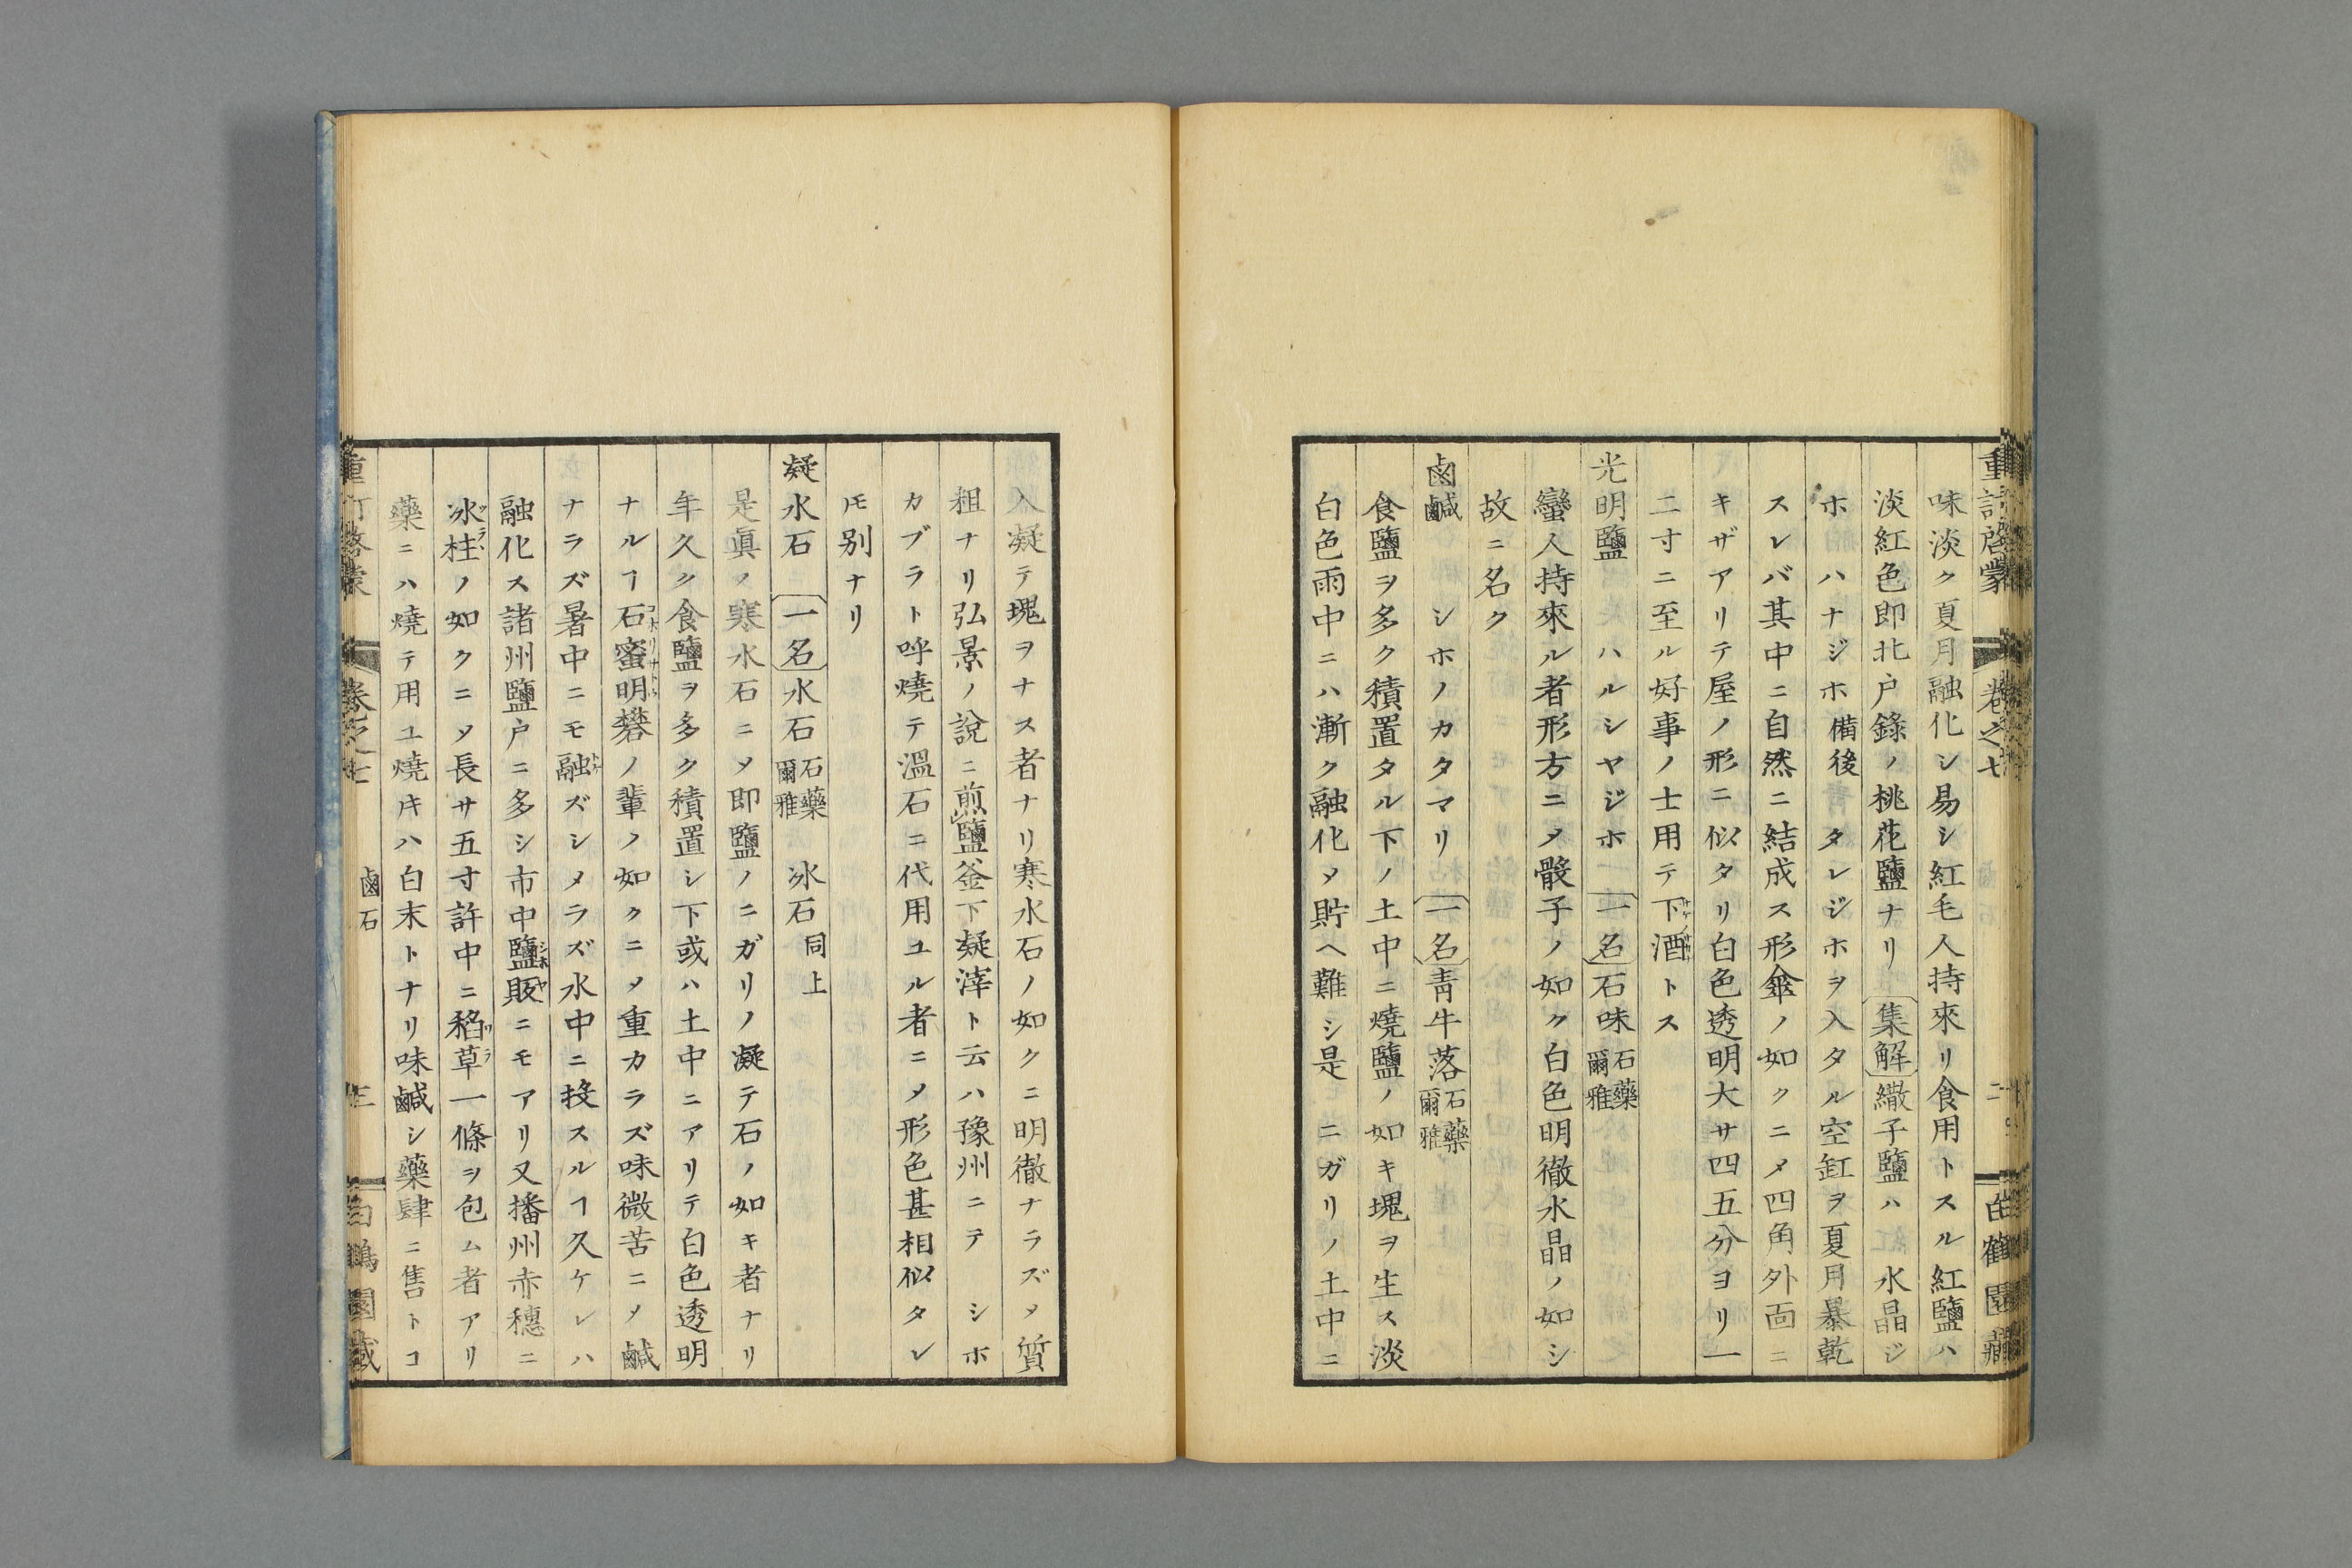 重訂啓蒙 卷之七
味淡ク夏月融化シ易シ紅毛人持來リ食用トスル紅鹽ハ
淡紅色即北户錄ノ桃花鹽ナリ 集解 繖子鹽ハ 水晶ジ
ホ ハナジホ備後 タレジホヲ入タル空缸ヲ夏月暴乾
スレバ其中ニ自然ニ結成ス形傘ノ如クニメ四角外面ニ
キザアリテ屋ノ形ニ似タリ白色透明大サ四五分ヨリ一
二寸ニ至ル好事ノ士用テ下酒トス
光明鹽 ハルシヤジホ 一名 石味 石藥爾雅
蠻人持來ル者形方ニメ骰子ノ如ク白色明徹水晶ノ如シ
故ニ名ク
鹵鹹 シホノカタマリ 一名 靑牛落 石藥爾雅
食鹽ヲ多ク積置タル下ノ土中ニ燒鹽ノ如キ塊ヲ生ス淡
白色雨中ニハ漸ク融化メ貯ヘ難シ是ニガリノ土中ニ
入凝テ塊ヲナス者ナリ寒水石ノ如クニ明徹ナラズメ質
粗ナリ弘景ノ說ニ煎鹽釜下凝滓ト云ハ豫州ニテ シホ
カブラト呼燒テ溫石ニ代用ユル者ニメ形色甚相似タレ
𪜈別ナリ
凝水石 一名 水石 石藥爾雅 冰石 同上
是眞ノ寒水石ニメ即鹽ノニガリノ凝テ石ノ如キ者ナリ
年久ク食鹽ヲ多ク積置シ下或ハ土中ニアリテ白色透明
ナルヿ石蜜明礬ノ輩ノ如クニメ重カラズ味微苦ニメ鹹
ナラズ暑中ニモ融ズシメラズ水中ニ投スルヿ久ケレハ
融化ス諸州鹽户ニ多シ市中鹽販ニモアリ又播州赤穗ニ
冰柱ノ如クニメ長サ五寸許中ニ稻草一條ヲ包ム者アリ
藥ニハ燒テ用ユ燒𪜈ハ白末トナリ味鹹シ藥肆ニ售トコ
卷之七 鹵石